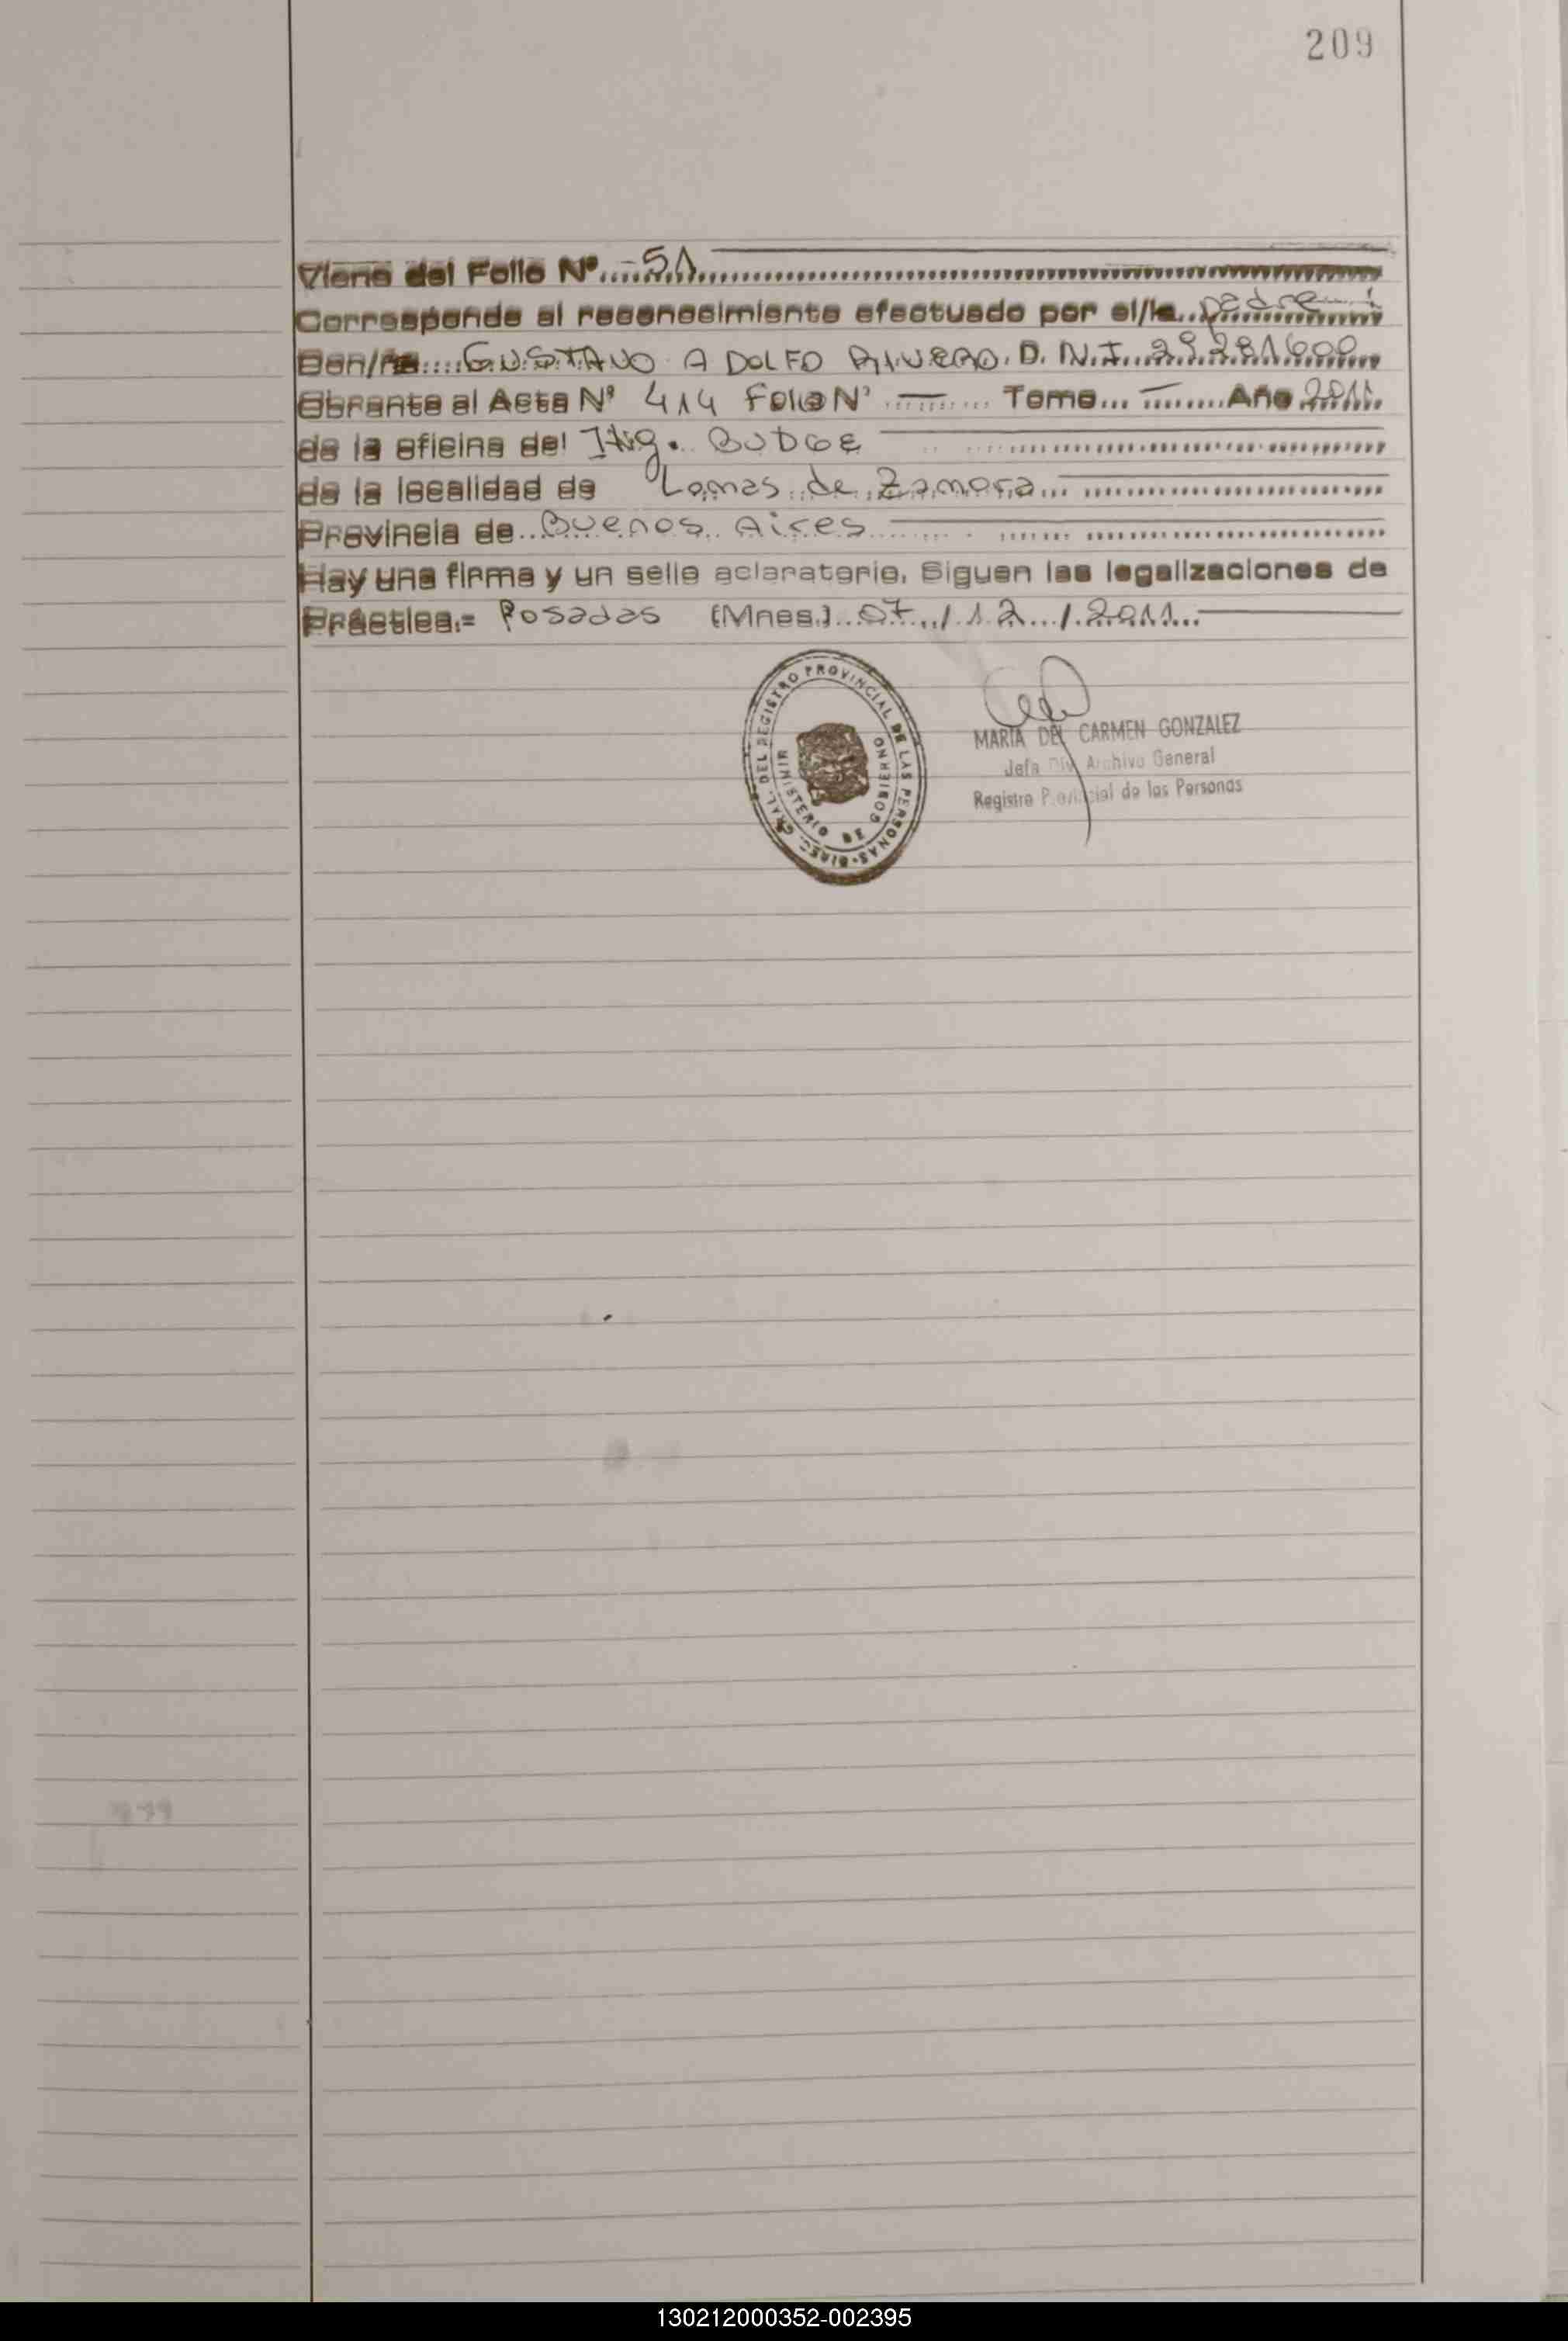 209
Viene del Folio Nº.....51
Corresponde al reconocimiento efectuado por el/la..padre
Don/ña....GUSTAVO ADOLFO RIVERO. D. N.I...29281600
Obrante al Acta Nº 414 Folio Nº — Tomo... — Año 2011
de la oficina del Ing. BUDGE
de la localidad de Lomas de Zamora
Provincia de..Buenos Aires
Hay una firma y un sello aclaratorio. Siguen las legalizaciones de
Práctica.= Posadas (Mnes.)..07../.12../.2011..
DIREC. GRAL. DEL REGISTRO PROVINCIAL DE LAS PERSONAS
MINISTERIO DE GOBIERNO
MARIA DEL CARMEN GONZALEZ
Jefa Div Archivo General
Registro Provincial de las Personas
130212000352-002395